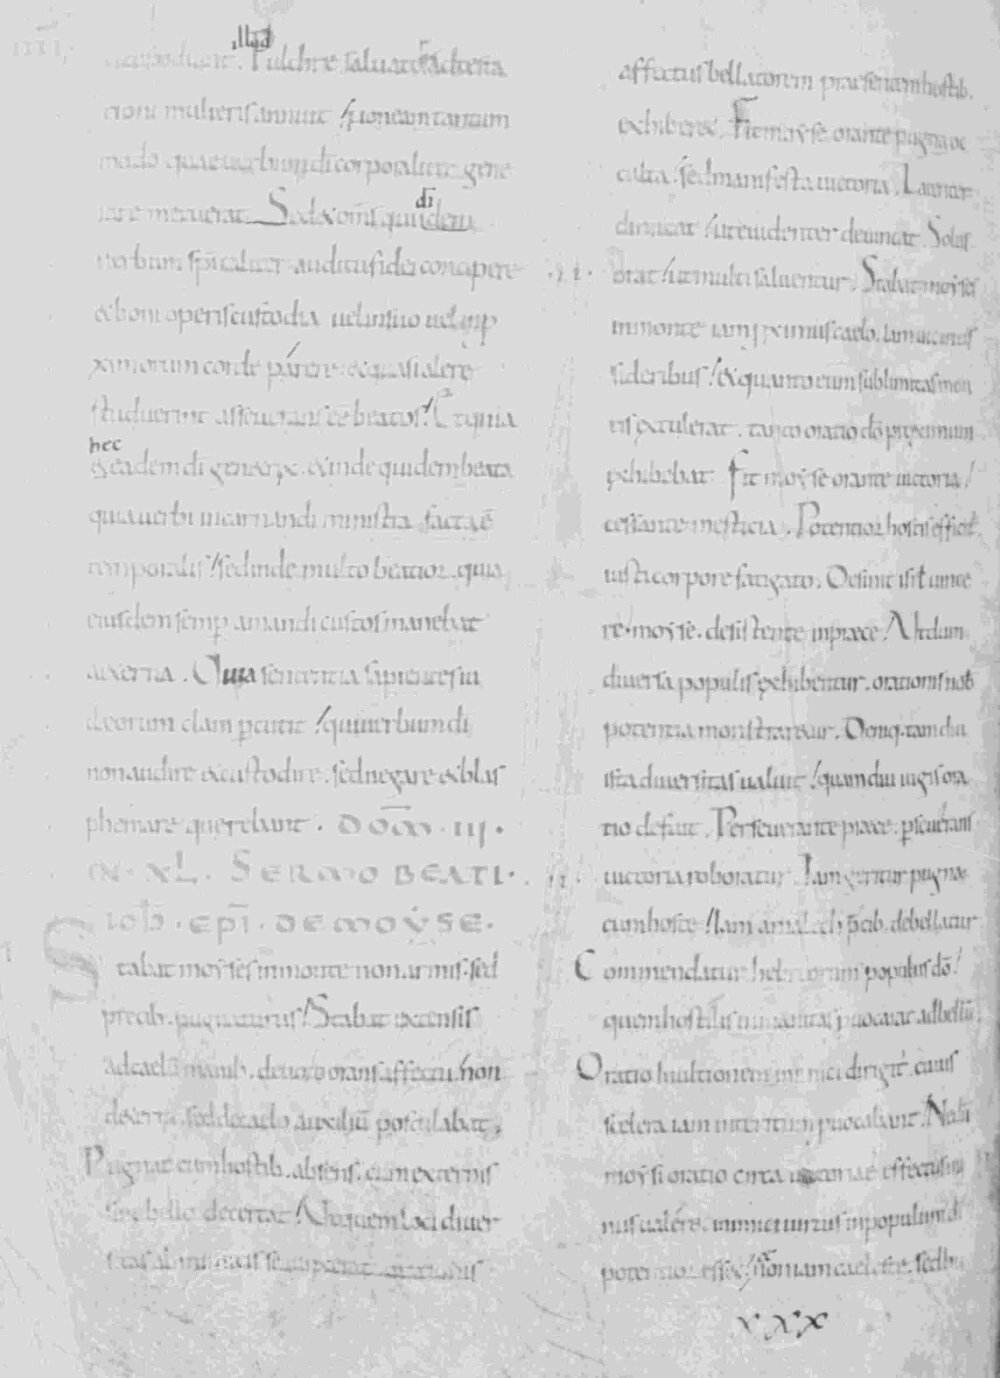 illud
Pulchre saluator adtesta
tioni mulieris annuit / si non eam tantum
modo quae uerbum di corporaliter gene
rare meruerat. Sed & oms qui idem
di
uerbum spitaliter auditu fidei concipere
& boni operis custodia uel in suo uel in p
ximorum corde parere. & quasi alere
studuerint asseuerans ee beatos / Et quia
hec
& eadem di genetrix. & inde quidem beata
quia uerbi incarnandi ministra facta e
temporalis / sed inde multo beatior. quia
eiusdem semp amandi custos manebat
aeterna. Quia sententia sapientes iu
deorum clam pcutit / qui uerbum di
non audire & custodire. sed negare & blas
phemare querebant. DOM. III.
IN. XL. SERMO BEATI.
IOH. EPI. DE MOYSE.
Stabat moyses in monte non armis. sed
precib. pugnaturus / Stabat extensis
ad caelu manib. deuoto orans affectu. non
de terra. sed de caelo auxiliu postulabat;
Pugnat cum hostib. absens. cum externis
sine bello decertat / At quem loci diuer
sitas ab inimicis separat
affectus bellatorem praesentem hostib.
exhiberet. Fit moyse orante pugna oc
culta. sed manifesta uictoria. Latenter
dimicat / ut euidenter deuincat. Solus
.II. orat / ut multi saluentur. Stabat moyses
in monte iam pximus caelo. iam uicinus
sideribus / & quanto eum sublimitas mon
tis extulerat. tanto oratio do proximum
exhibebat. Fit moyse orante uictoria /
cessante mesticia. Potentior hostis efficit
iusti corpore fatigato. Desinit isrl uince
re. moyse. desistente in praece / At dum
diuersa populis exhibentur. orationis nob
potentia monstraretur. Deniq. tam diu
ista diuersitas ualuit / quam diu iugis ora
tio defuit. Perseuerante praece. pseuerans
.II. uictoria roboratur. Iam geritur pugna
cum hoste / Iam amalech pcib. debellatur
Commendatur hebreorum populus do /
quem hostilis inmanitas puocarat ad belliu
Oratio in ultionem inimici dirigit. cuius
scelera iam interitum puocabant / Ne du
moysi oratio circa uictoriae effectus mi
nus ualeret. inimici uirtus in populum di
potentior esset / non iam caeleste. sed hu
XXX